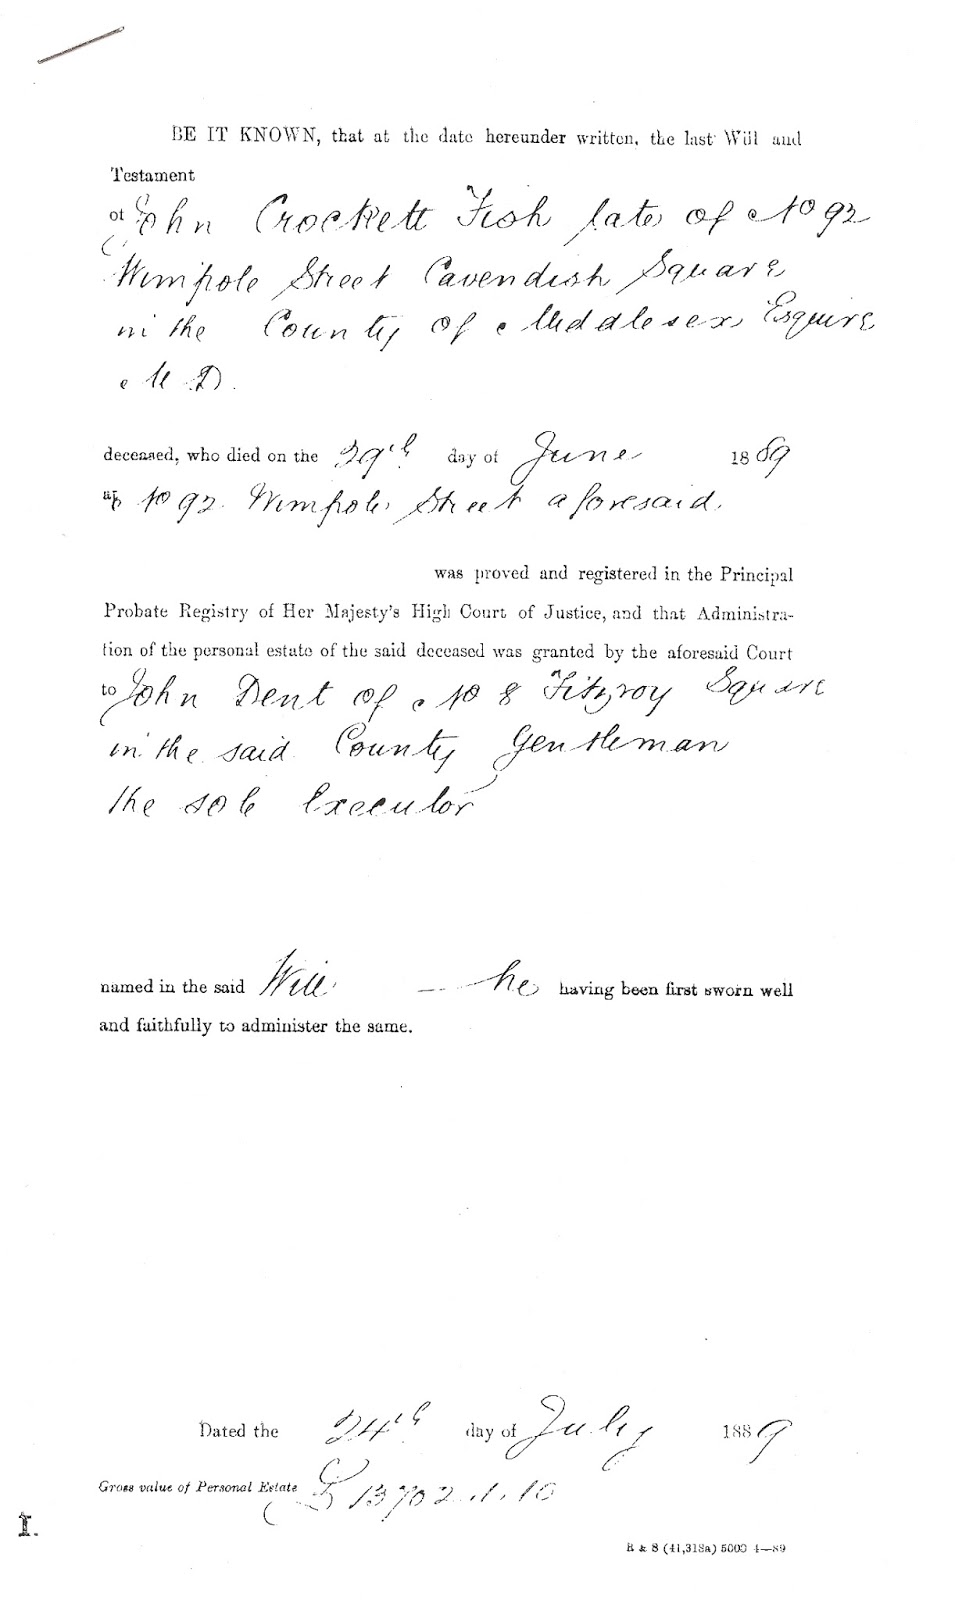 BE IT KNOWN, that at the date hereunder written, the last Will and
Testament
of John Crockett Fish late of No 92
Wimpole Street Cavendish Square
in the County of Middlesex Esquire
M D.
deceased, who died on the 29th day of June 1889
at No 92 Wimpole Street aforesaid.
was proved and registered in the Principal
Probate Registry of Her Majesty's High Court of Justice, and that Administra-
tion of the personal estate of the said deceased was granted by the aforesaid Court
to John Dent of No 8 Fitzroy Square
in the said County Gentleman
the sole Executor
named in the said Will — he having been first sworn well
and faithfully to administer the same.
Dated the 24th day of July 1889
Gross value of Personal Estate £13702.1.10
I.
R & S (41,318a) 5000 4—89